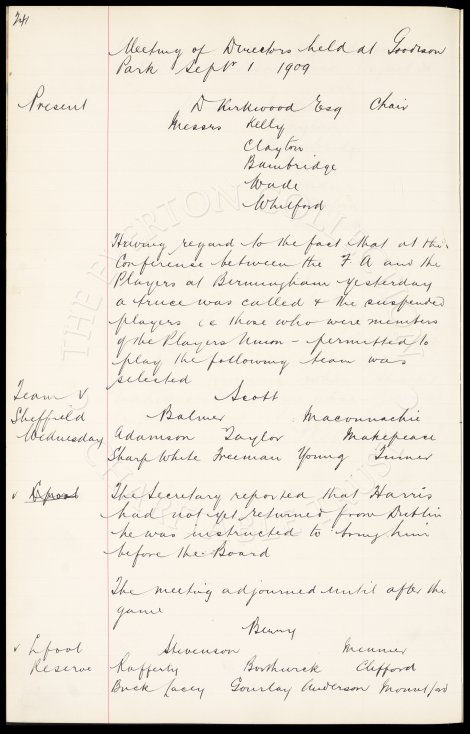 241
Meeting of Directors held at Goodison
Park Sept 1 1909
Present D Kirkwood Esq Chair
Messrs Kelly
Clayton
Bainbridge
Wade
Whitford
Having regard to the fact that at the
Conference between the F A and the
Players at Birmingham yesterday
a truce was called & the suspended
players i e those who were members
of the Players Union - permitted to
play the following team was
selected
Team v Scott
Sheffield Balmer Maconnachie
Wednesday Adamson Taylor Makepeace
Sharp White Freeman Young Turner
v L'pool The Secretary reported that Harris
had not yet returned from Dublin
he was instructed to bring him
before the Board
The meeting adjourned until after the
game
Berry
v L'pool Stevenson Meunier
Reserve Rafferty Borthwick Clifford
Buck Lacey Gourlay Anderson Mountford
THE EVERTON COLLECTION